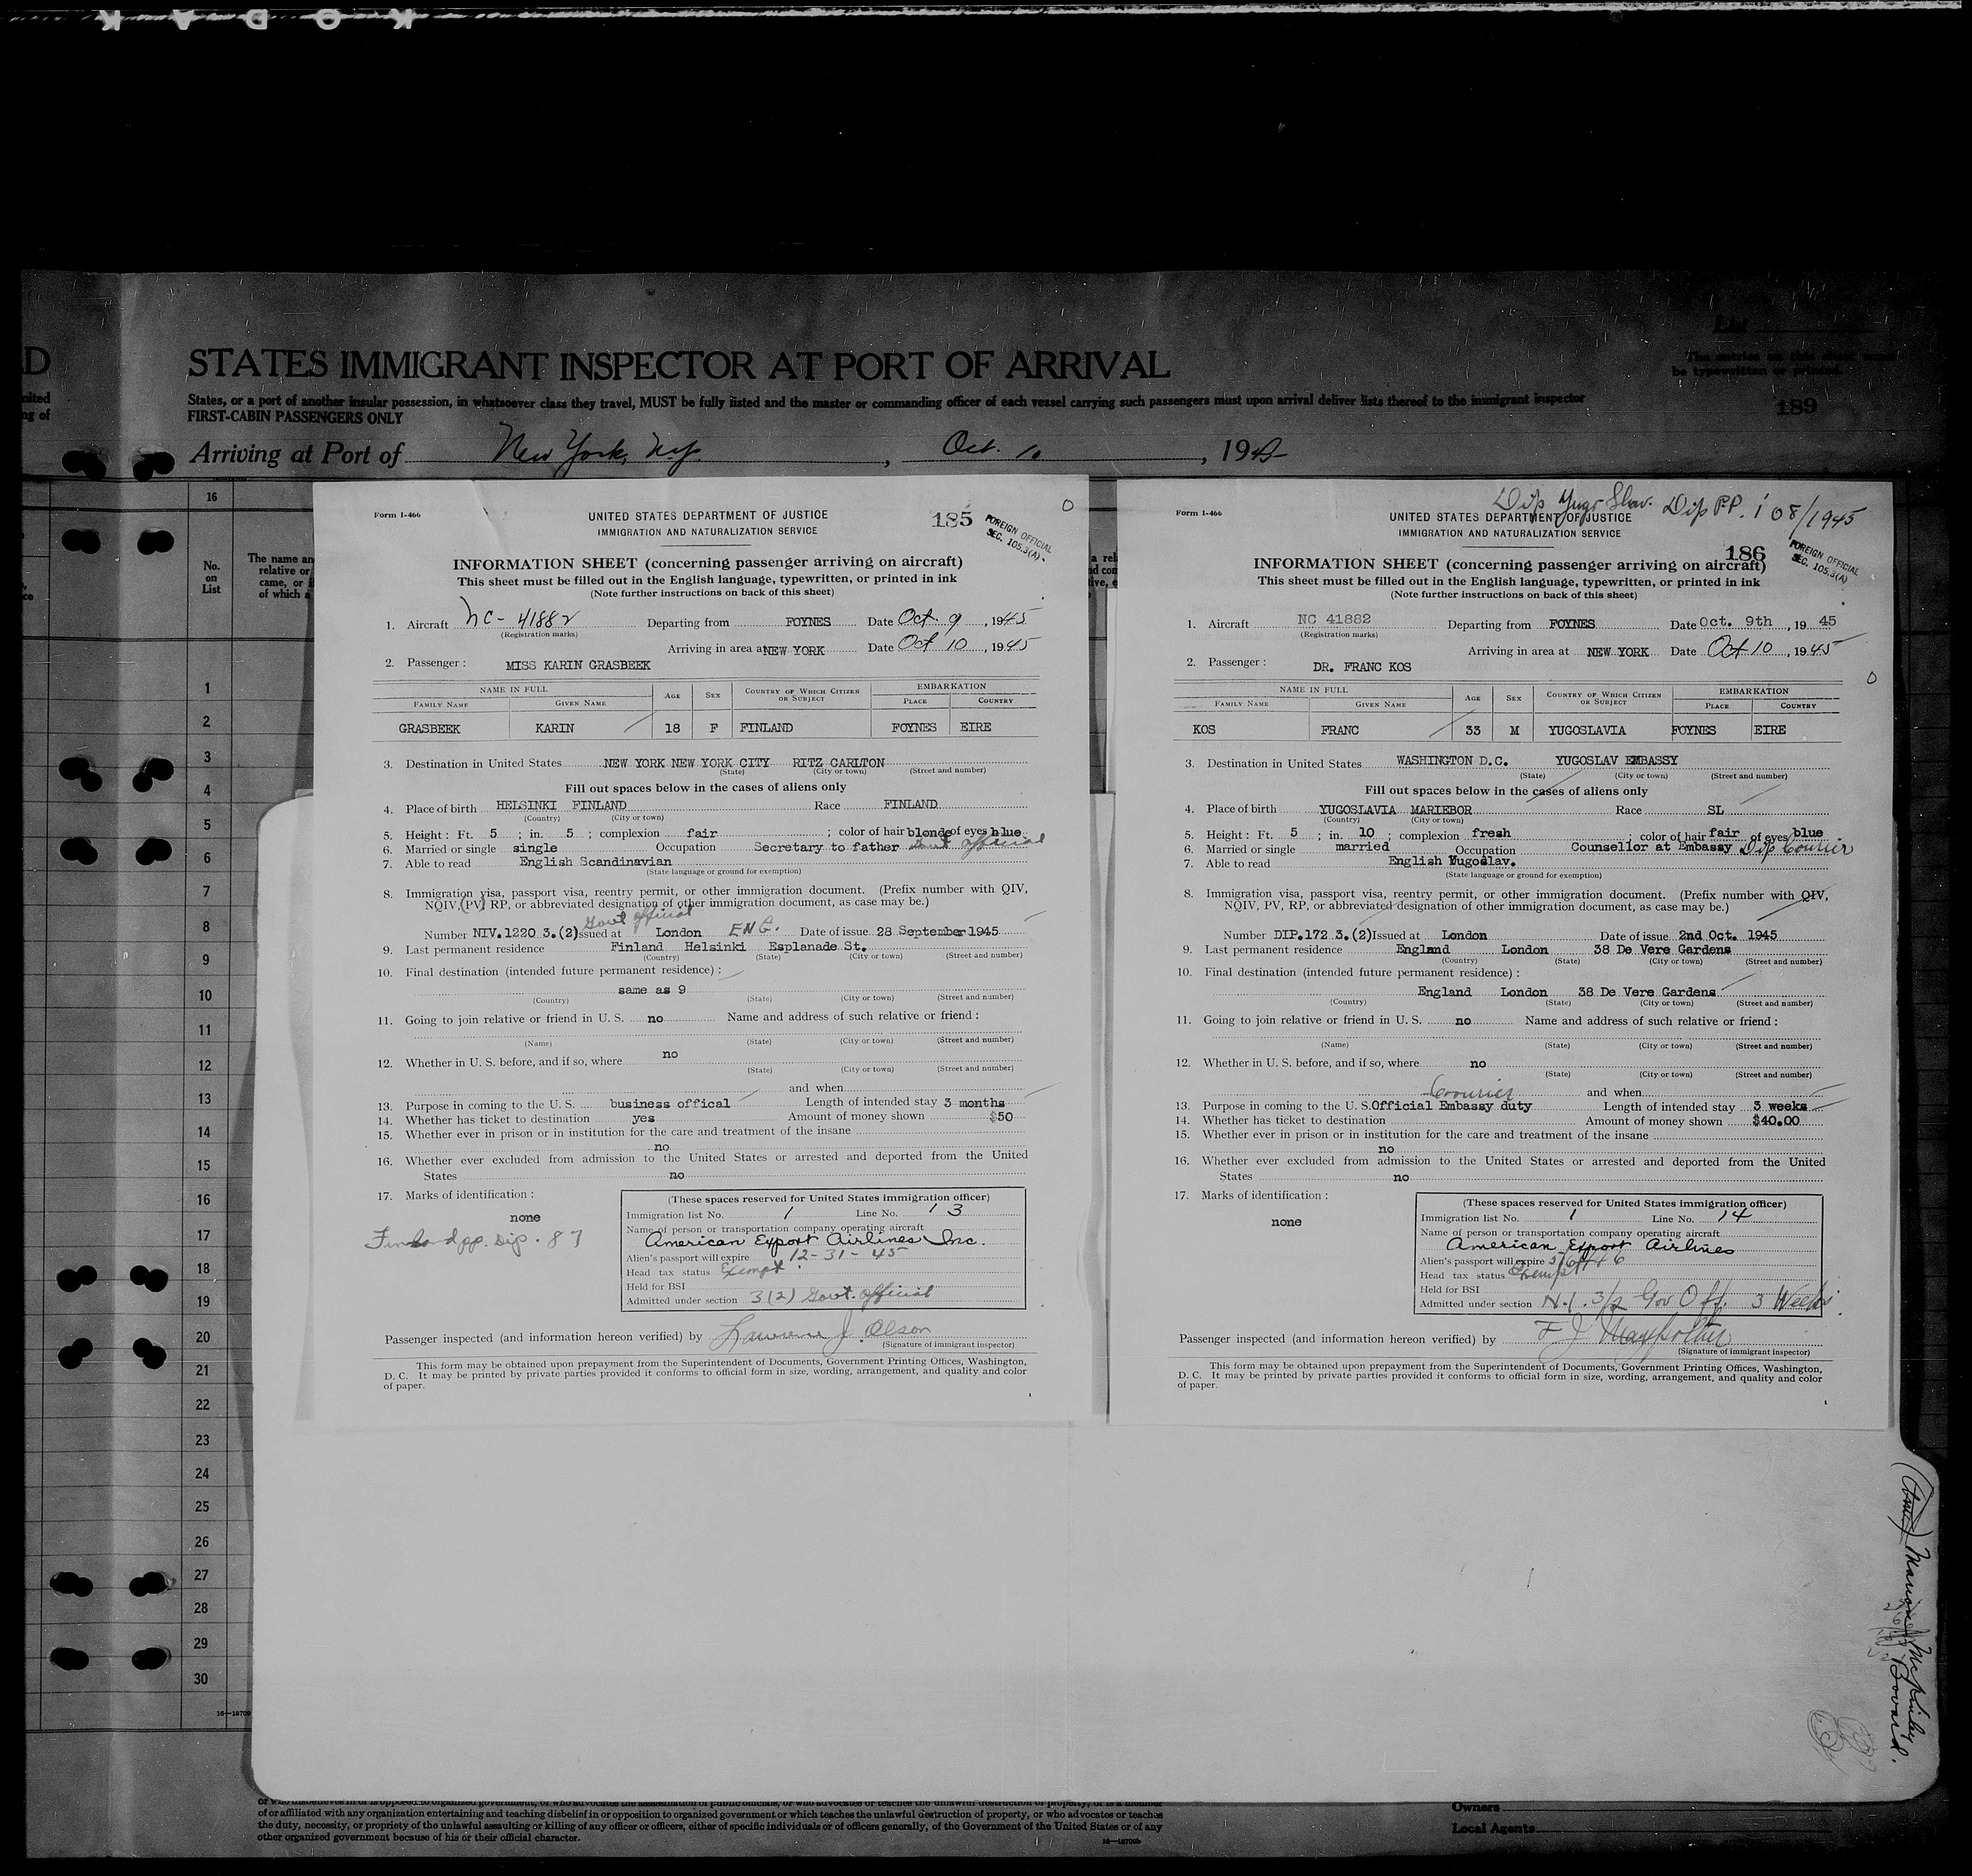 KODAK
STATES IMMIGRANT INSPECTOR AT PORT OF ARRIVAL
States, or a port of another insular possession, in whatsoever class they travel, MUST be fully listed and the master or commanding officer of each vessel carrying such passengers must upon arrival deliver lists thereof to the immigrant inspector
FIRST-CABIN PASSENGERS ONLY
List
The entries on this sheet must
be typewritten or printed.
189
Arriving at Port of New York, N.Y., Oct. 10, 1945
16
No.
on
List
The name an
relative or
came, or i
of which a
1
2
3
4
5
6
7
8
9
10
11
12
13
14
15
16
17
18
19
20
21
22
23
24
25
26
27
28
29
30
16—18709
Form I-466
UNITED STATES DEPARTMENT OF JUSTICE
IMMIGRATION AND NATURALIZATION SERVICE
185
FOREIGN OFFICIAL
SEC. 105.3(A).
INFORMATION SHEET (concerning passenger arriving on aircraft)
This sheet must be filled out in the English language, typewritten, or printed in ink
(Note further instructions on back of this sheet)
1. Aircraft NC-41882 Departing from FOYNES Date Oct. 9, 1945
(Registration marks)
Arriving in area at NEW YORK Date Oct 10, 1945
2. Passenger: MISS KARIN GRASBEEK
NAME IN FULL AGE SEX COUNTRY OF WHICH CITIZEN OR SUBJECT EMBARKATION
FAMILY NAME GIVEN NAME PLACE COUNTRY
GRASBEEK KARIN 18 F FINLAND FOYNES EIRE
3. Destination in United States NEW YORK NEW YORK CITY RITZ CARLTON
(State) (City or town) (Street and number)
Fill out spaces below in the cases of aliens only
4. Place of birth HELSINKI FINLAND Race FINLAND
(Country) (City or town)
5. Height: Ft. 5; in. 5; complexion fair; color of hair blonde of eyes blue
6. Married or single single Occupation Secretary to father Govt official
7. Able to read English Scandinavian
(State language or ground for exemption)
8. Immigration visa, passport visa, reentry permit, or other immigration document. (Prefix number with QIV,
NQIV, (PV) RP, or abbreviated designation of other immigration document, as case may be.)
Govt official
Number NIV.1220 3.(2) Issued at London ENG. Date of issue 28 September 1945
9. Last permanent residence Finland Helsinki Esplanade St.
(Country) (State) (City or town) (Street and number)
10. Final destination (intended future permanent residence):
same as 9
(Country) (State) (City or town) (Street and number)
11. Going to join relative or friend in U. S. no Name and address of such relative or friend:
(Name) (State) (City or town) (Street and number)
12. Whether in U. S. before, and if so, where no
(State) (City or town) (Street and number)
and when
13. Purpose in coming to the U. S. business offical Length of intended stay 3 months
14. Whether has ticket to destination yes Amount of money shown $50
15. Whether ever in prison or in institution for the care and treatment of the insane
no
16. Whether ever excluded from admission to the United States or arrested and deported from the United
States no
17. Marks of identification:
none
Finland pp. Dip. 87
(These spaces reserved for United States immigration officer)
Immigration list No. 1 Line No. 13
Name of person or transportation company operating aircraft
American Export Airlines Inc.
Alien's passport will expire 12-31-45
Head tax status Exempt
Held for BSI
Admitted under section 3(2) Govt. official
Passenger inspected (and information hereon verified) by Lawrence J. Olson
(Signature of immigrant inspector)
This form may be obtained upon prepayment from the Superintendent of Documents, Government Printing Offices, Washington,
D. C. It may be printed by private parties provided it conforms to official form in size, wording, arrangement, and quality and color
of paper.
Dip Yugo Slav. Dip PP. 108/1945
Form I-466
UNITED STATES DEPARTMENT OF JUSTICE
IMMIGRATION AND NATURALIZATION SERVICE
186
FOREIGN OFFICIAL
SEC. 105.3(A)
INFORMATION SHEET (concerning passenger arriving on aircraft)
This sheet must be filled out in the English language, typewritten, or printed in ink
(Note further instructions on back of this sheet)
1. Aircraft NC 41882 Departing from FOYNES Date Oct. 9th, 19 45
(Registration marks)
Arriving in area at NEW YORK Date Oct 10, 1945
2. Passenger: DR. FRANC KOS
NAME IN FULL AGE SEX COUNTRY OF WHICH CITIZEN OR SUBJECT EMBARKATION
FAMILY NAME GIVEN NAME PLACE COUNTRY
KOS FRANC 33 M YUGOSLAVIA FOYNES EIRE
3. Destination in United States WASHINGTON D.C. YUGOSLAV EMBASSY
(State) (City or town) (Street and number)
Fill out spaces below in the cases of aliens only
4. Place of birth YUGOSLAVIA MARIEBOR Race SL
(Country) (City or town)
5. Height: Ft. 5; in. 10; complexion fresh; color of hair fair of eyes blue
6. Married or single married Occupation Counsellor at Embassy Dip Courier
7. Able to read English Yugoslav.
(State language or ground for exemption)
8. Immigration visa, passport visa, reentry permit, or other immigration document. (Prefix number with QIV,
NQIV, PV, RP, or abbreviated designation of other immigration document, as case may be.)
Number DIP.172 3.(2) Issued at London Date of issue 2nd Oct. 1945
9. Last permanent residence England London 38 De Vere Gardens
(Country) (State) (City or town) (Street and number)
10. Final destination (intended future permanent residence):
England London 38 De Vere Gardens
(Country) (State) (City or town) (Street and number)
11. Going to join relative or friend in U. S. no Name and address of such relative or friend:
(Name) (State) (City or town) (Street and number)
12. Whether in U. S. before, and if so, where no
(State) (City or town) (Street and number)
Courier and when
13. Purpose in coming to the U. S. Official Embassy duty Length of intended stay 3 weeks
14. Whether has ticket to destination Amount of money shown $40.00
15. Whether ever in prison or in institution for the care and treatment of the insane
no
16. Whether ever excluded from admission to the United States or arrested and deported from the United
States no
17. Marks of identification:
none
(These spaces reserved for United States immigration officer)
Immigration list No. 1 Line No. 14
Name of person or transportation company operating aircraft
American Export Airlines
Alien's passport will expire
Head tax status Exempt
Held for BSI
Admitted under section N.I. 3/2 Gov Off. 3 Weeks
Passenger inspected (and information hereon verified) by
(Signature of immigrant inspector)
This form may be obtained upon prepayment from the Superintendent of Documents, Government Printing Offices, Washington,
D. C. It may be printed by private parties provided it conforms to official form in size, wording, arrangement, and quality and color
of paper.
Bovard.
of or affiliated with any organization entertaining and teaching disbelief in or opposition to organized government or which teaches the unlawful destruction of property, or who advocates or teaches
the duty, necessity, or propriety of the unlawful assaulting or killing of any officer or officers, either of specific individuals or of officers generally, of the Government of the United States or of any
other organized government because of his or their official character.
Owners
Local Agents